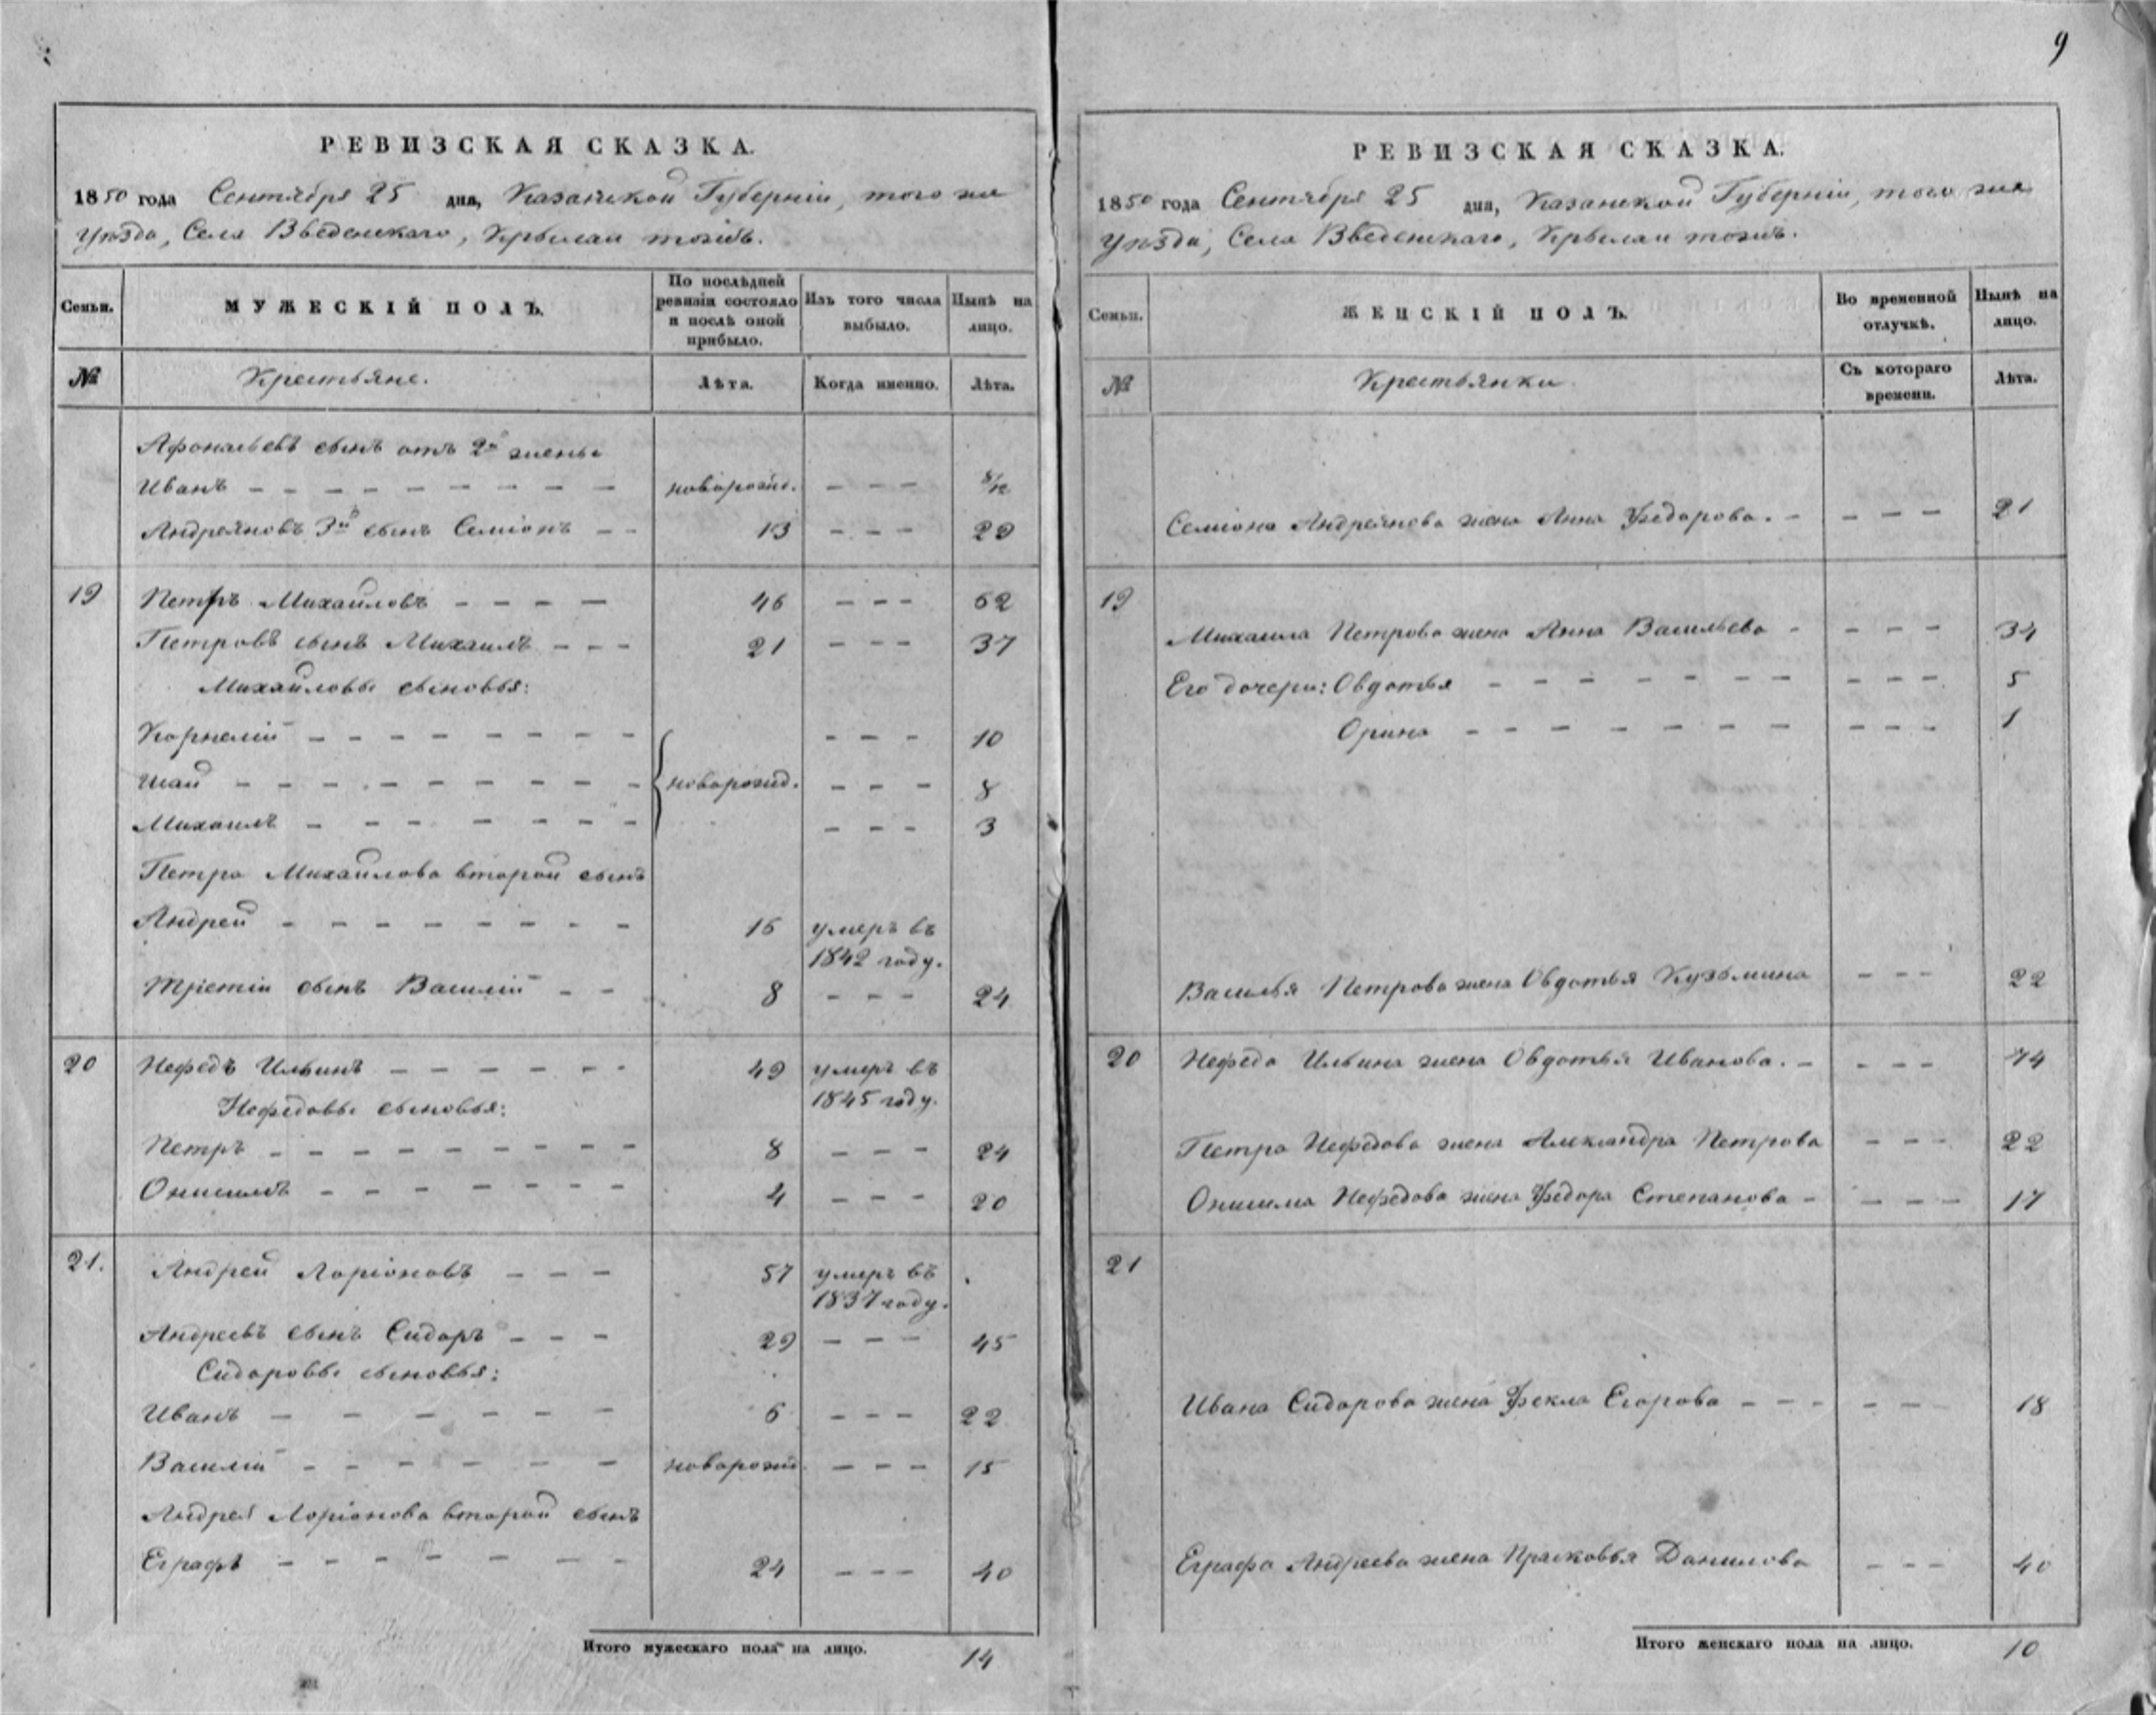 9
РЕВИЗСКАЯ СКАЗКА.
1850 года Сентября 25 дня, Казанской Губерніи, того же
Уѣзда, Села Введенскаго, тожъ.
Семьи. МУЖЕСКІЙ ПОЛЪ. По послѣдней ревизіи состояло и послѣ оной прибыло. Изъ того числа выбыло. Нынѣ на лицо.
№ Крестьяне. Лѣта. Когда именно. Лѣта.
Афонасьевъ сынъ отъ 2й жены
Иванъ - - - - - - - - - новорожд. - - - 8/12
Андреяновъ 3й сынъ Семіонъ - - 13 - - - 29
19 Петръ Михайловъ - - - - 46 - - - 62
Петровъ сынъ Михаилъ - - - 21 - - - 37
Михайловы сыновья:
Корнелій - - - - - - - - - - - 10
Исай - - - - - - - - - новорожд. - - - 8
Михаилъ - - - - - - - - - - - 3
Петра Михайлова второй сынъ
Андрей - - - - - - - - 16 умеръ въ
1842 году.
Третій сынъ Василій - - 8 - - - 24
20 Нефедъ Ильинъ - - - - - - 49 умеръ въ
Нефедовы сыновья: 1845 году.
Петръ - - - - - - - - - 8 - - - 24
Онисимъ - - - - - - - 4 - - - 20
21. Андрей Ларіоновъ - - - 57 умеръ въ
1837 году.
Андреевъ сынъ Сидоръ - - - 29 - - - 45
Сидоровы сыновья:
Иванъ - - - - - - 6 - - - 22
Василій - - - - - - новорожд. - - - 15
Андрея Ларіонова второй сынъ
Еграфъ - - - - - - - - 24 - - - 40
Итого мужескаго пола на лицо. 14
РЕВИЗСКАЯ СКАЗКА.
1850 года Сентября 25 дня, Казанской Губерніи, того же
Уѣзда, Села Введенскаго, тожъ.
Семьи. ЖЕНСКІЙ ПОЛЪ. Во временной отлучкѣ. Нынѣ на лицо.
№ Крестьянки. Съ котораго времени. Лѣта.
Семіона Андреянова жена Анна Федорова. - - - - 21
19
Михаила Петрова жена Анна Васильева - - - - 34
Его дочери: Овдотья - - - - - - - - - - - 5
Орина - - - - - - - - - - - 1
Василья Петрова жена Овдотья Кузьмина - - - 22
20 Нефеда Ильина жена Овдотья Иванова. - - - - 44
Петра Нефедова жена Александра Петрова - - - 22
Онисима Нефедова жена Федора Степанова - - - - 17
21
Ивана Сидорова жена Фекла Егорова - - - - - 18
Еграфа Андреева жена Прасковья Данилова - - - 40
Итого женскаго пола на лицо. 10